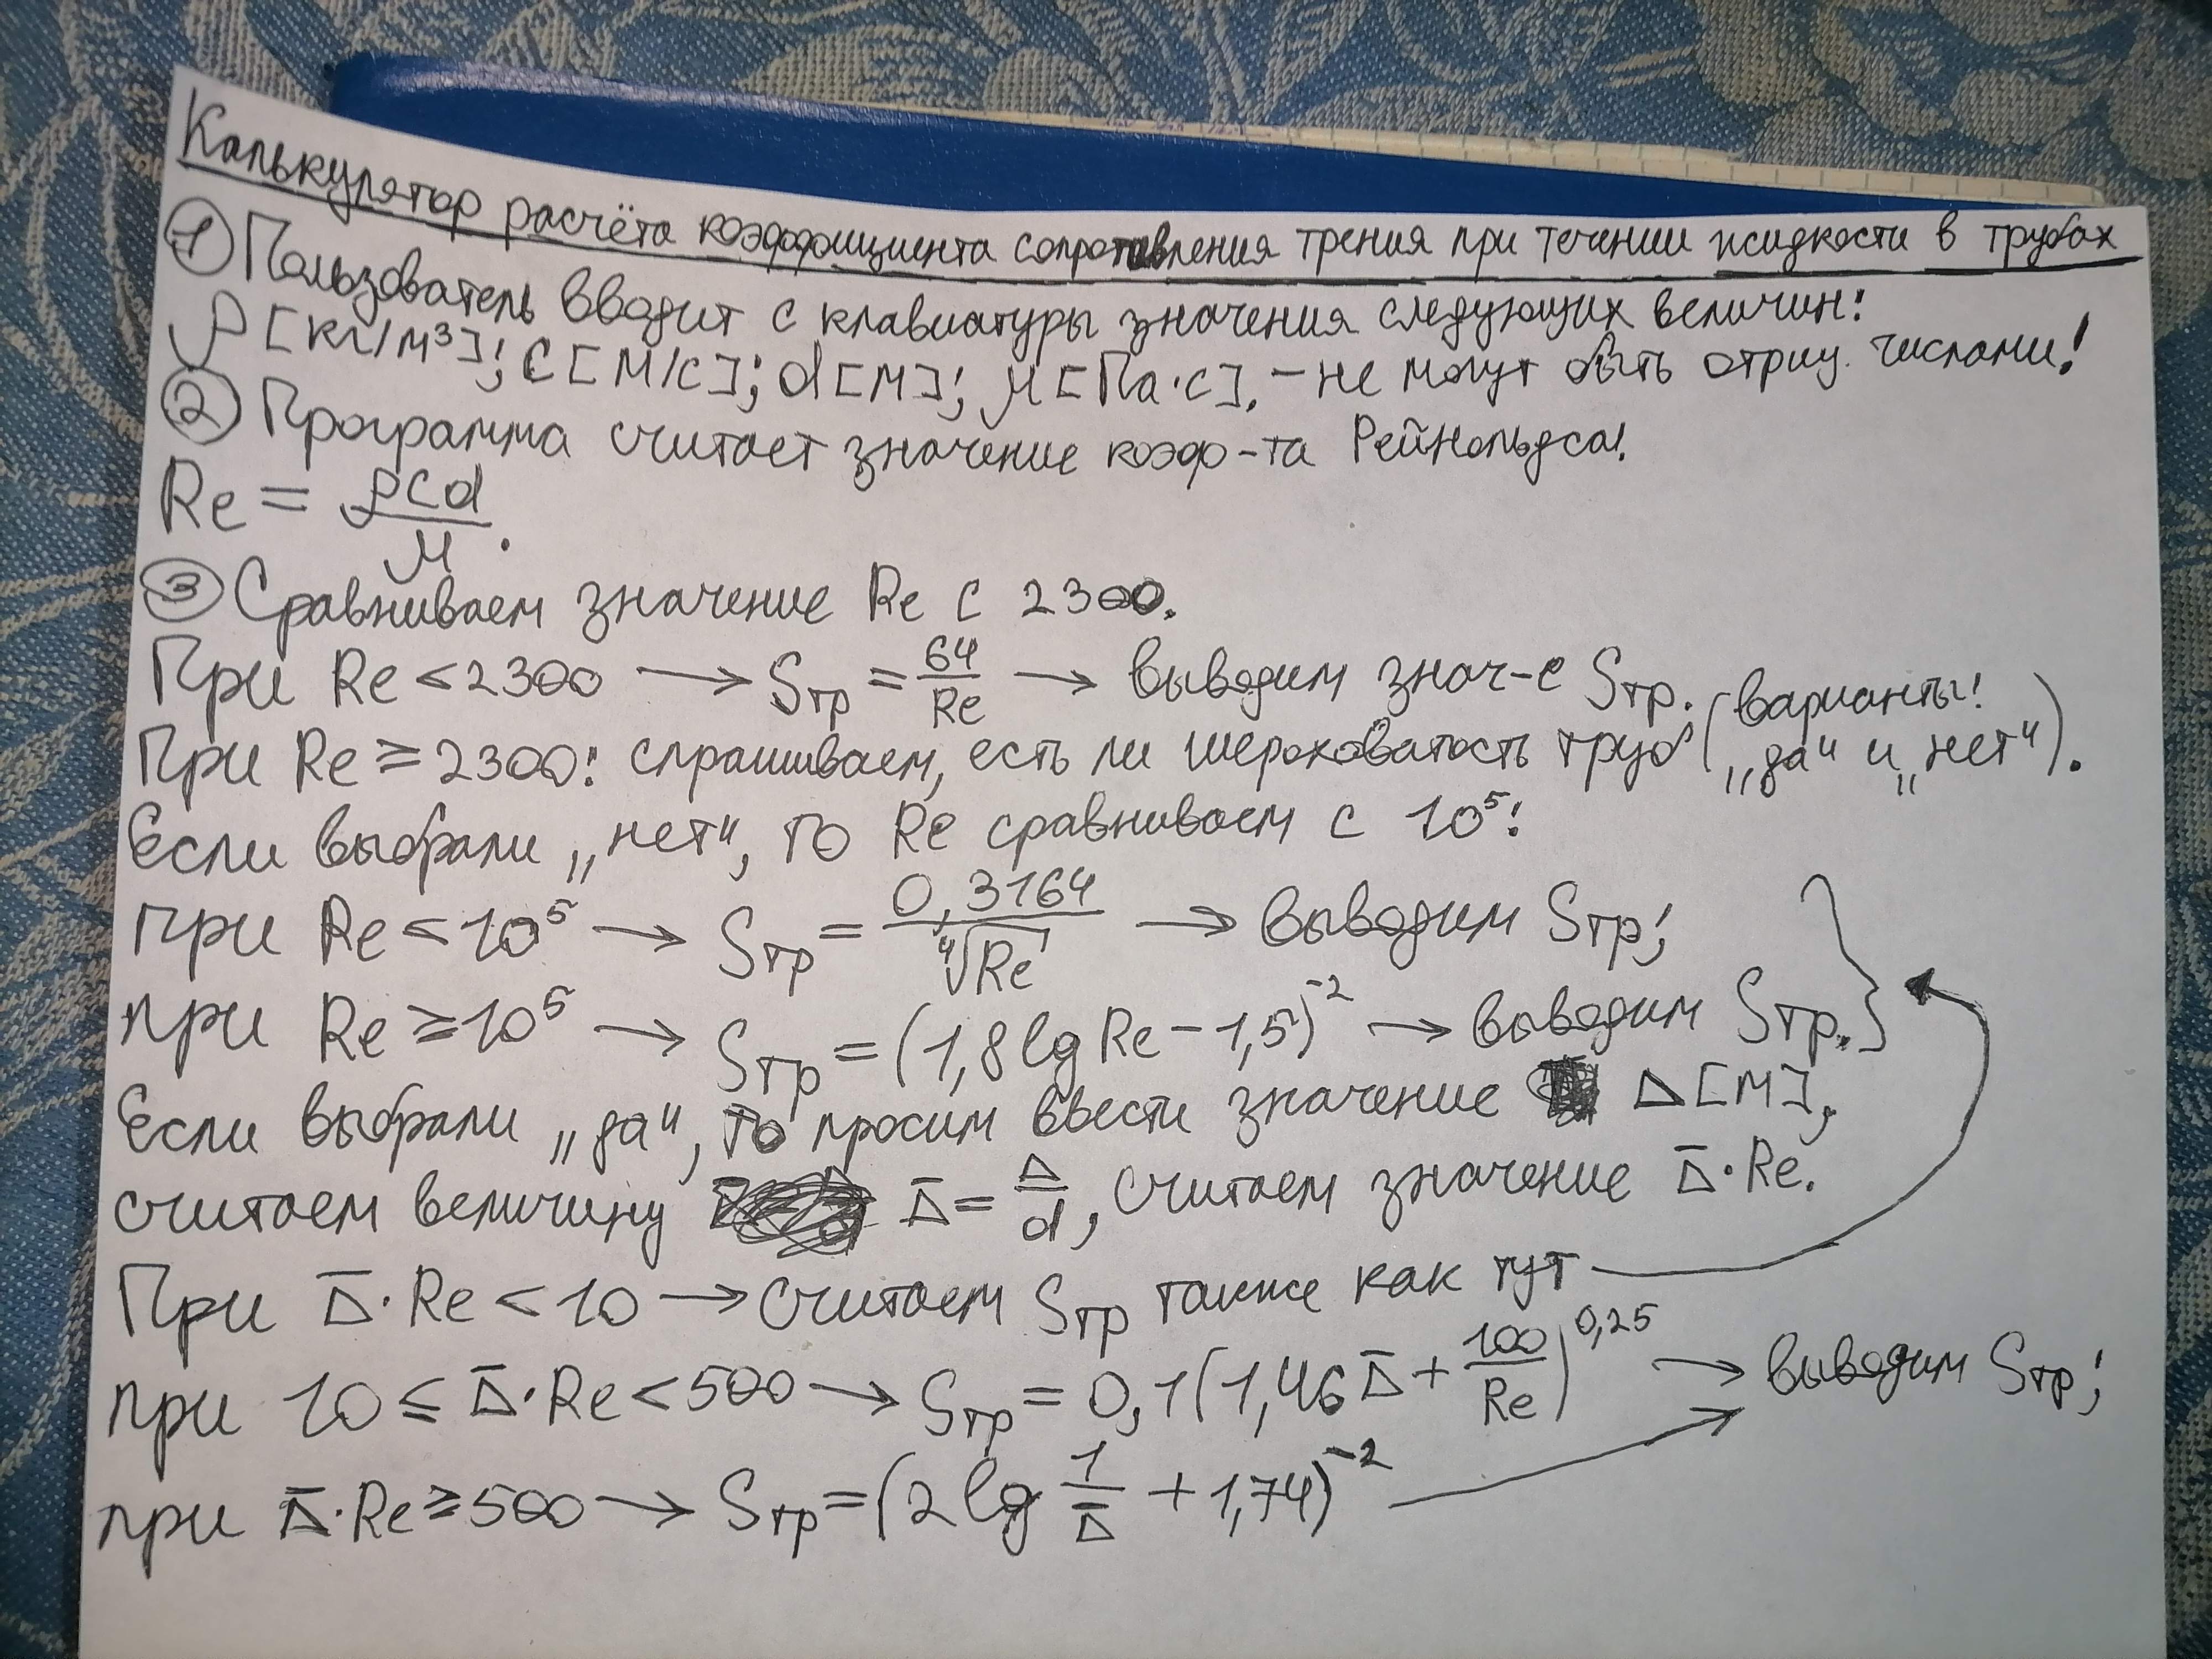 Калькулятор расчёта коэффициента сопротивления трения при течении жидкости в трубах
① Пользователь вводит с клавиатуры значения следующих величин:
ρ [кг/м³]; c [м/с]; d [м]; μ [Па·с]. – не могут быть отриц. числами!
② Программа считает значение коэф-та Рейнольдса:
Re = ρcd/μ.
③ Сравниваем значение Re с 2300.
При Re < 2300 → Sтр = 64/Re → выводим знач-е Sтр.
При Re ≥ 2300: спрашиваем, есть ли шероховатость труб (варианты: „да“ и „нет“).
Если выбрали „нет“, то Re сравниваем с 10⁵:
при Re < 10⁵ → Sтр = 0,3164/⁴√Re → выводим Sтр;
при Re ≥ 10⁵ → Sтр = (1,8 lg Re – 1,5)⁻² → выводим Sтр.
Если выбрали „да“, то просим ввести значение Δ [м],
считаем величину Δ̅ = Δ/d, считаем значение Δ̅·Re.
При Δ̅·Re < 10 → считаем Sтр также как тут
при 10 ≤ Δ̅·Re < 500 → Sтр = 0,1(1,46Δ̅ + 100/Re)^0,25 → выводим Sтр;
при Δ̅·Re ≥ 500 → Sтр = (2 lg 1/Δ̅ + 1,74)⁻²